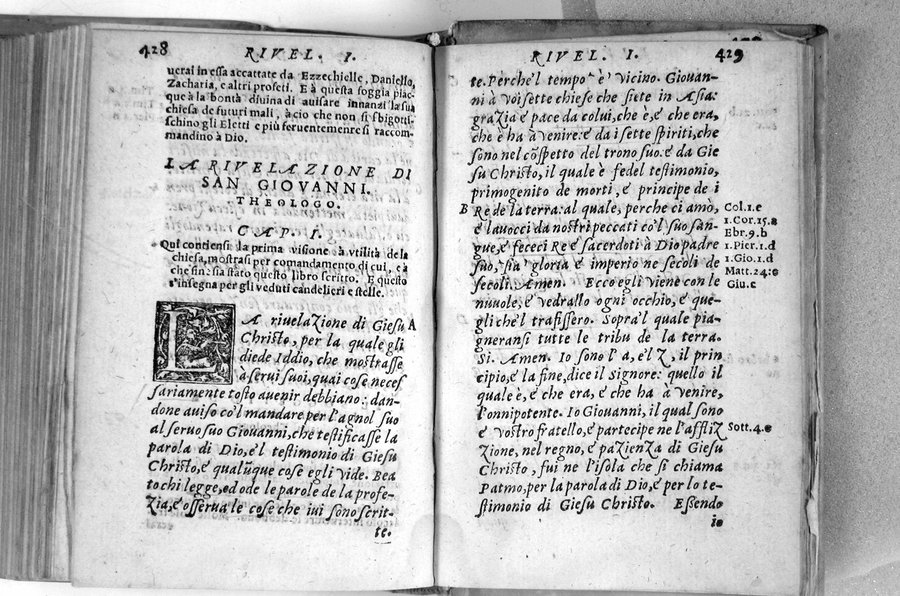 428
RIVEL. I.
uerai in essa accattate da Ezzechielle, Daniello,
Zacharia, e altri profeti. E à questa foggia piac-
que à la bontà diuina di auisare innanzi la sua
chiesa de futuri mali, à cio che non si sbigotti-
schino gli Eletti e piu feruentemente si raccom-
mandino à Dio.
LA RIVELAZIONE DI
SAN GIOVANNI.
THEOLOGO.
CAP. I.
Qui contiensi la prima visione à vtilità de la
chiesa, mostrasi per comandamento di cui, e à
che fine sia stato questo libro scritto. E questo
s'insegna per gli veduti candelieri e stelle.
LA riuelazione di Giesu A
Christo, per la quale gli
diede Iddio, che mostrasse
à serui suoi, quai cose neces
sariamente tosto auenir debbiano: dan-
done auiso co'l mandare per l'agnol suo
al seruo suo Giouanni, che testificasse la
parola di Dio, e'l testimonio di Giesu
Christo, e qualunque cose egli vide. Bea
to chi legge, ed ode le parole de la profe-
zia, e osserua le cose che iui sono scrit-
te.
RIVEL. I.
429
te. Perche'l tempo è vicino. Giouan-
ni à voi sette chiese che siete in Asia:
grazia e pace da colui, che è, e che era,
che è ha à venire: e da i sette spiriti, che
sono nel cōspetto del trono suo: e da Gie
su Christo, il quale è fedel testimonio,
primogenito de morti, e principe de i
B Re de la terra: al quale, perche ci amò,
e lauocci da nostri peccati co'l suo san-
gue, e fececi Re e sacerdoti à Dio padre
suo, sia gloria e imperio ne secoli de
secoli. Amen. Ecco egli viene con le
nuuole, e vedrallo ogni occhio, e que-
gli che'l trafissero. Sopra'l quale pia-
gneransi tutte le tribu de la terra.
Si. Amen. Io sono l'a, e'l Z, il prin
cipio, e la fine, dice il Signore: quello il
quale è, e che era, e che ha à venire,
l'onnipotente. Io Giouanni, il qual sono
e vostro fratello, e partecipe ne l'affliz
zione, nel regno, e pazienza di Giesu
Christo, fui ne l'isola che si chiama
Patmo, per la parola di Dio, e per lo te-
stimonio di Giesu Christo. Essendo
io
Col. 1. e
1. Cor. 15. a
Ebr. 9. b
1. Pier. 1. d
1. Gio. 1. d
Matt. 24. e
Giu. c
Sott. 4. e